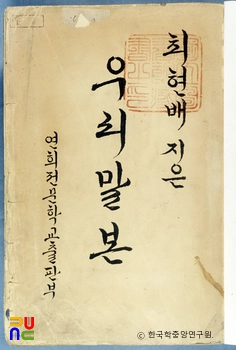 최현배 지은
우리말본
연희전문학교출판부
ⓒ 한국학중앙연구원